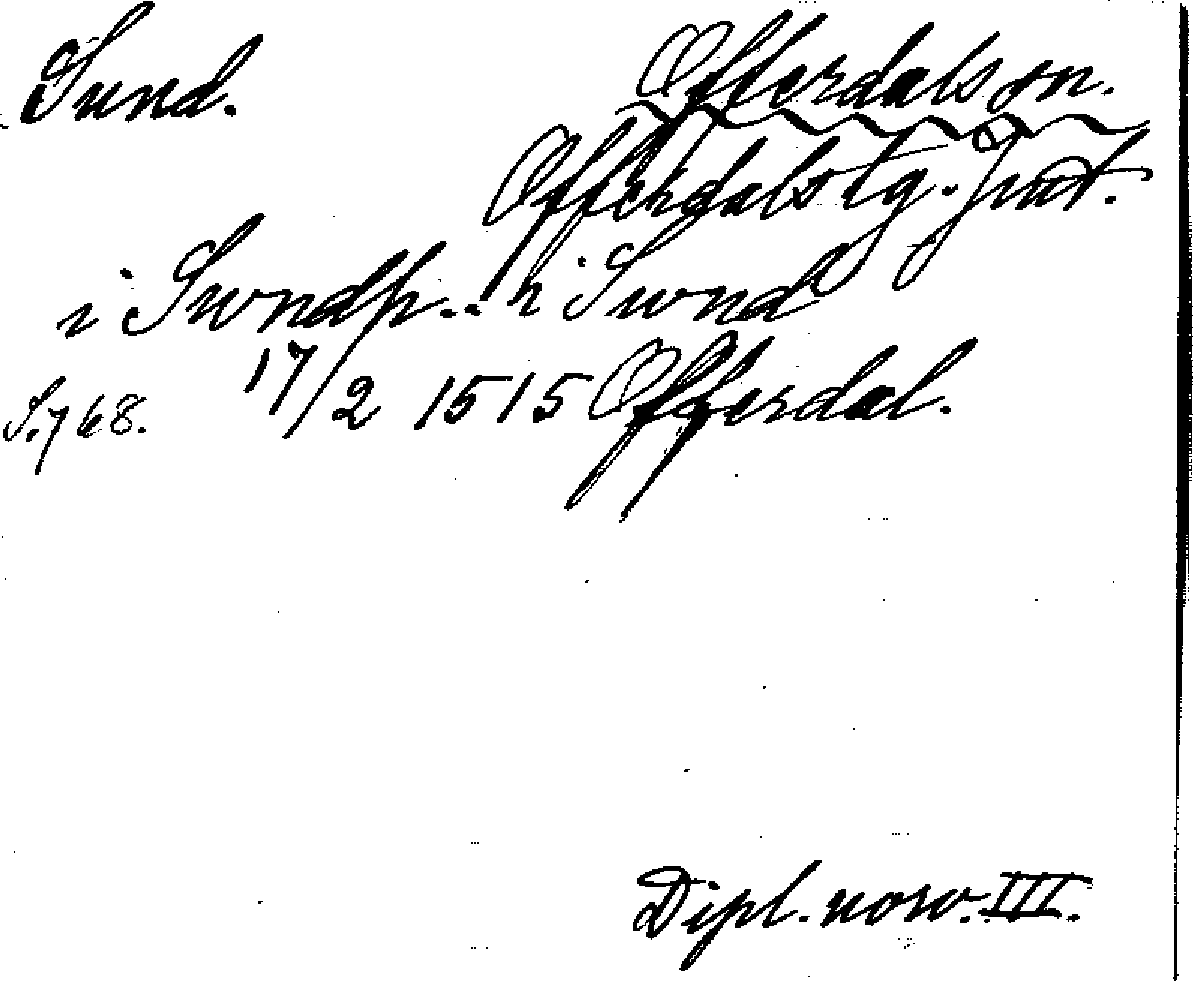 Sund. Offerdals sn.
Offerdals tg. Jmt.
i Swndh... i Swnd
17/2 1515 Offerdal.
S. 768.
Dipl. norv. III.